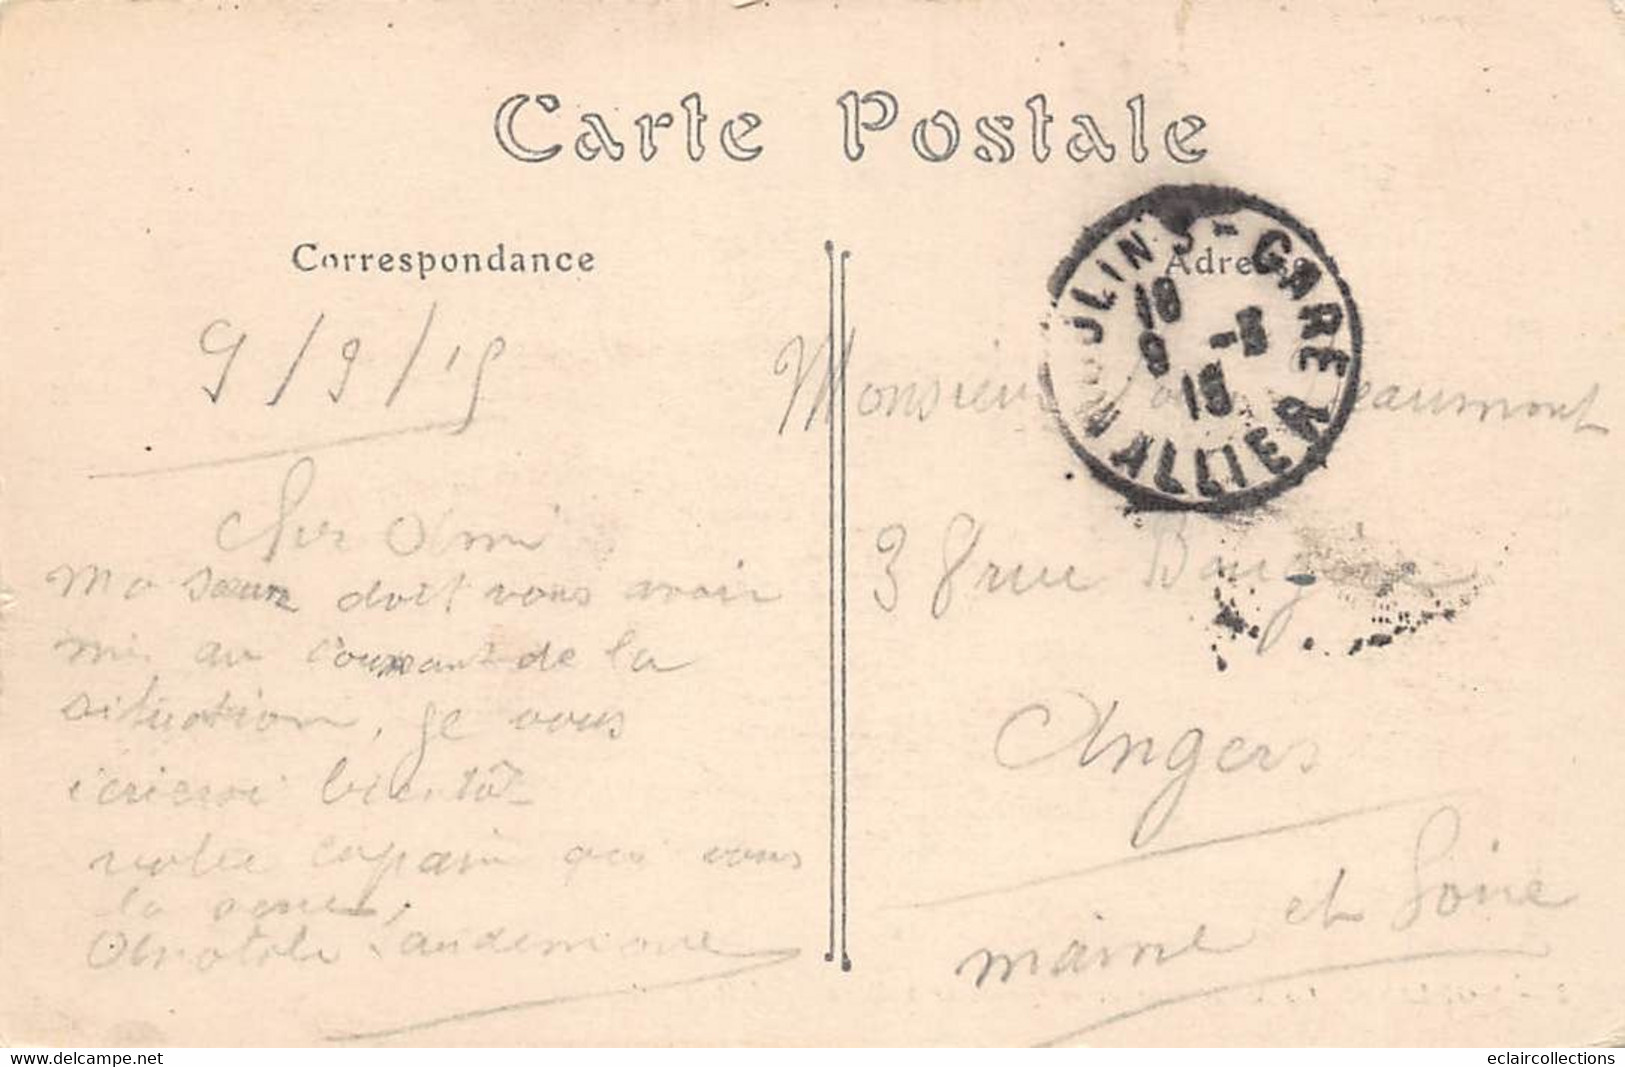 Carte Postale
Correspondance
9/9/15
Cher Ami
Ma Sœur doit vous avoir
mis au courant de la
situation, je vous
écrierai bientôt
votre copain qui vous
la serre,
Anatole
Adresse
MOULINS-GARE
ALLIER
Monsieur Beaumont
38 rue
Angers
Maine et Loire
delcampe.net
eclaircollections